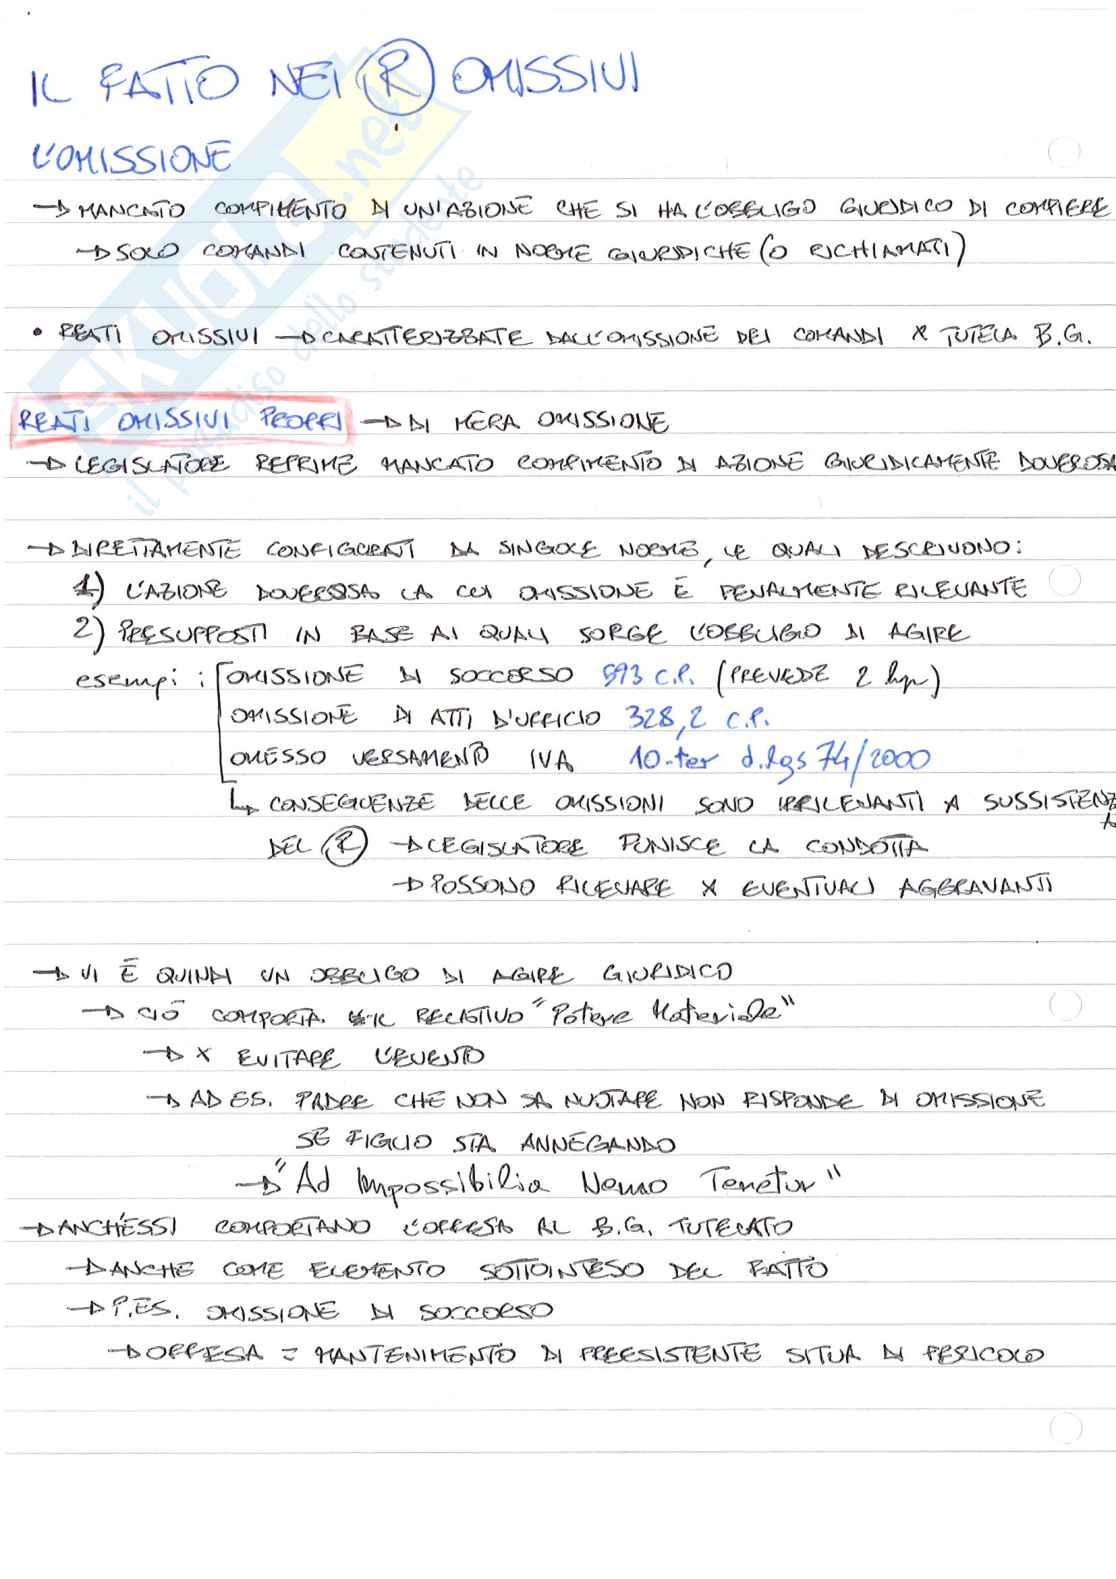 IL FATTO NEI Ⓡ OMISSIVI
L'OMISSIONE
→ MANCATO COMPIMENTO DI UN'AZIONE CHE SI HA L'OBBLIGO GIURIDICO DI COMPIERE
→ SOLO COMANDI CONTENUTI IN NORME GIURIDICHE (O RICHIAMATI)
• REATI OMISSIVI → CARATTERIZZATE DALL'OMISSIONE DEI COMANDI X TUTELA B.G.
REATI OMISSIVI PROPRI → DI MERA OMISSIONE
→ LEGISLATORE REPRIME MANCATO COMPIMENTO DI AZIONE GIURIDICAMENTE DOVEROSA
→ DIRETTAMENTE CONFIGURATI DA SINGOLE NORME, LE QUALI DESCRIVONO:
1) L'AZIONE DOVEROSA LA CUI OMISSIONE È PENALMENTE RILEVANTE
2) PRESUPPOSTI IN BASE AI QUALI SORGE L'OBBLIGO DI AGIRE
esempi : OMISSIONE DI SOCCORSO 593 C.P. (PREVEDE 2 hp)
OMISSIONE DI ATTI D'UFFICIO 328,2 C.P.
OMESSO VERSAMENTO IVA 10-ter d.lgs 74/2000
↳ CONSEGUENZE DELLE OMISSIONI SONO IRRILEVANTI A SUSSISTENZA
DEL Ⓡ → LEGISLATORE PUNISCE LA CONDOTTA
→ POSSONO RILEVARE X EVENTUALI AGGRAVANTI
→ VI È QUINDI UN OBBLIGO DI AGIRE GIURIDICO
→ CIÒ COMPORTA IL RELATIVO "Potere Materiale"
→ X EVITARE L'EVENTO
→ AD ES. PADRE CHE NON SA NUOTARE NON RISPONDE DI OMISSIONE
SE FIGLIO STA ANNEGANDO
→ "Ad Impossibilia Nemo Tenetur"
→ ANCH'ESSI COMPORTANO L'OFFESA AL B.G. TUTELATO
→ ANCHE COME ELEMENTO SOTTOINTESO DEL FATTO
→ P.ES. OMISSIONE DI SOCCORSO
→ OFFESA = MANTENIMENTO DI PREESISTENTE SITUA DI PERICOLO
SKUOLA.net
il paradiso dello studente